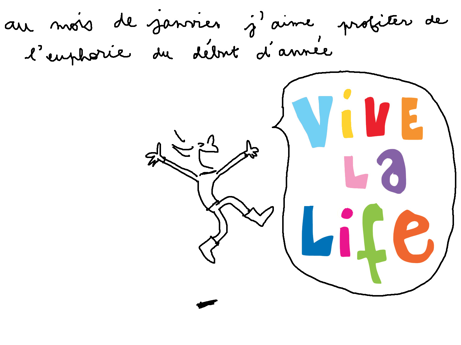 au mois de janvier j'aime profiter de
l'euphorie du début d'année
ViVE
LA
Life